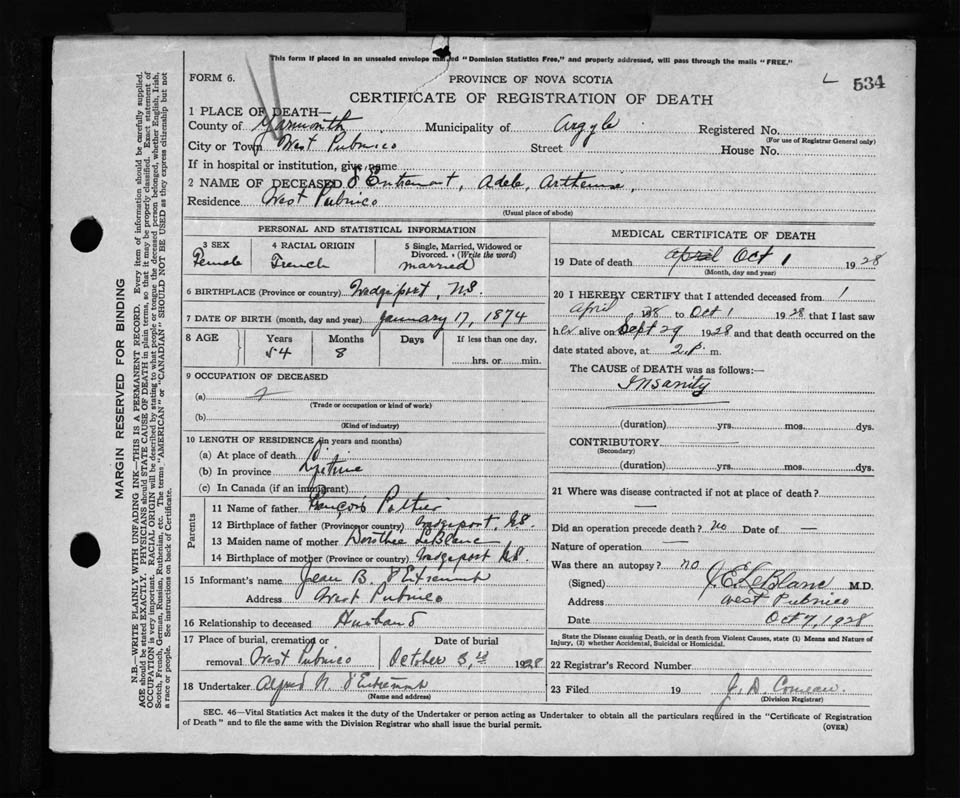 This form if placed in an unsealed envelope marked "Dominion Statistics Free," and properly addressed, will pass through the mails "FREE."
FORM 6.
PROVINCE OF NOVA SCOTIA
534
CERTIFICATE OF REGISTRATION OF DEATH
1 PLACE OF DEATH—
County of Yarmouth Municipality of Argyle Registered No.
(For use of Registrar General only)
City or Town West Pubnico Street House No.
If in hospital or institution, give name
2 NAME OF DECEASED d'Entremont, Adele, Arthemise,
Residence West Pubnico
(Usual place of abode)
PERSONAL AND STATISTICAL INFORMATION
3 SEX Female
4 RACIAL ORIGIN French
5 Single, Married, Widowed or Divorced. (Write the word) married
6 BIRTHPLACE (Province or country) Wedgeport, N.S.
7 DATE OF BIRTH (month, day and year) January 17, 1874
8 AGE Years Months Days If less than one day,
54 8 hrs. or min.
9 OCCUPATION OF DECEASED
(a)
(Trade or occupation or kind of work)
(b)
(Kind of industry)
10 LENGTH OF RESIDENCE (in years and months)
(a) At place of death
(b) In province Lifetime
(c) In Canada (if an immigrant)
Parents
11 Name of father François Pothier
12 Birthplace of father (Province or country) Wedgeport, N.S.
13 Maiden name of mother Dorothee LeBlanc
14 Birthplace of mother (Province or country) Wedgeport N.S.
15 Informant's name Jean B. d'Entremont
Address West Pubnico
16 Relationship to deceased Husband
17 Place of burial, cremation or removal West Pubnico
Date of burial October 3, 1928
18 Undertaker Alfred N. d'Entremont
(Name and address)
MEDICAL CERTIFICATE OF DEATH
19 Date of death April Oct 1 1928
(Month, day and year)
20 I HEREBY CERTIFY that I attended deceased from 1
April 1928 to Oct 1 1928 that I last saw
her alive on Sept 29 1928 and that death occurred on the
date stated above, at 2 P. m.
The CAUSE of DEATH was as follows:—
Insanity
(duration) yrs. mos. dys.
CONTRIBUTORY
(Secondary)
(duration) yrs. mos. dys.
21 Where was disease contracted if not at place of death?
—
Did an operation precede death? no Date of —
Nature of operation —
Was there an autopsy? no
(Signed) J. E. LeBlanc M.D.
Address West Pubnico
Date Oct 7, 1928
State the Disease causing Death, or in death from Violent Causes, state (1) Means and Nature of
Injury, (2) whether Accidental, Suicidal or Homicidal.
22 Registrar's Record Number
23 Filed 19 J. D. Comeau.
(Division Registrar)
SEC. 46—Vital Statistics Act makes it the duty of the Undertaker or person acting as Undertaker to obtain all the particulars required in the "Certificate of Registration
of Death" and to file the same with the Division Registrar who shall issue the burial permit.
(OVER)
MARGIN RESERVED FOR BINDING
N.B.—WRITE PLAINLY WITH UNFADING INK—THIS IS A PERMANENT RECORD. Every item of information should be carefully supplied.
AGE should be stated EXACTLY. PHYSICIANS should STATE CAUSE OF DEATH in plain terms, so that it may be properly classified. Exact statement of
OCCUPATION is very important. RACIAL ORIGIN will be described by stating to what people or tongue the deceased person belonged, whether English, Irish,
Scotch, French, German, Russian, Ruthenian, etc. The terms "AMERICAN" or "CANADIAN" SHOULD NOT BE USED as they express citizenship but not
a race or people. See instructions on back of Certificate.